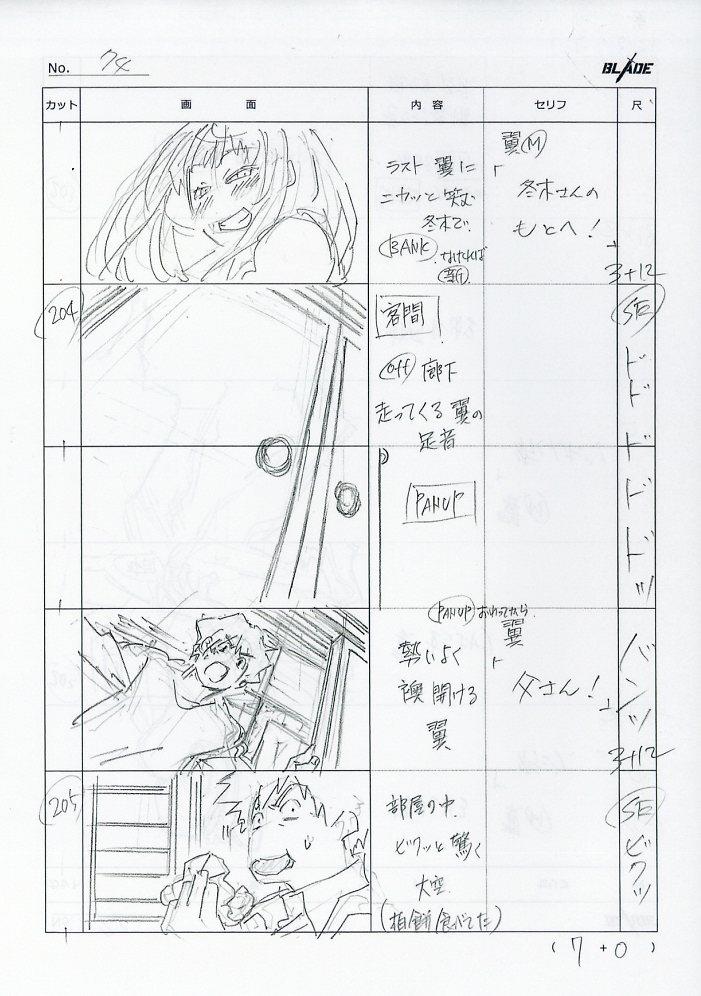 No. 74
BLADE
カット 画面 内容 セリフ 尺
ラスト 翼に
ニカッと笑む
冬木で.
BANK. なければ
新作
翼 M
「
冬木さんの
もとへ!
」
3+12
204
客間
off 廊下
走ってくる 翼の
足音
SE
ド
ド
ド
ド
ド
ッ
PAN UP
PANUP おわってから.
勢いよく
襖 開ける
翼
翼
「
父さん!
」
バンッ
3+12
205
部屋の中.
ビクッと 驚く
大空.
(柏餅食べてた)
SE
ビクッ
(7+0)